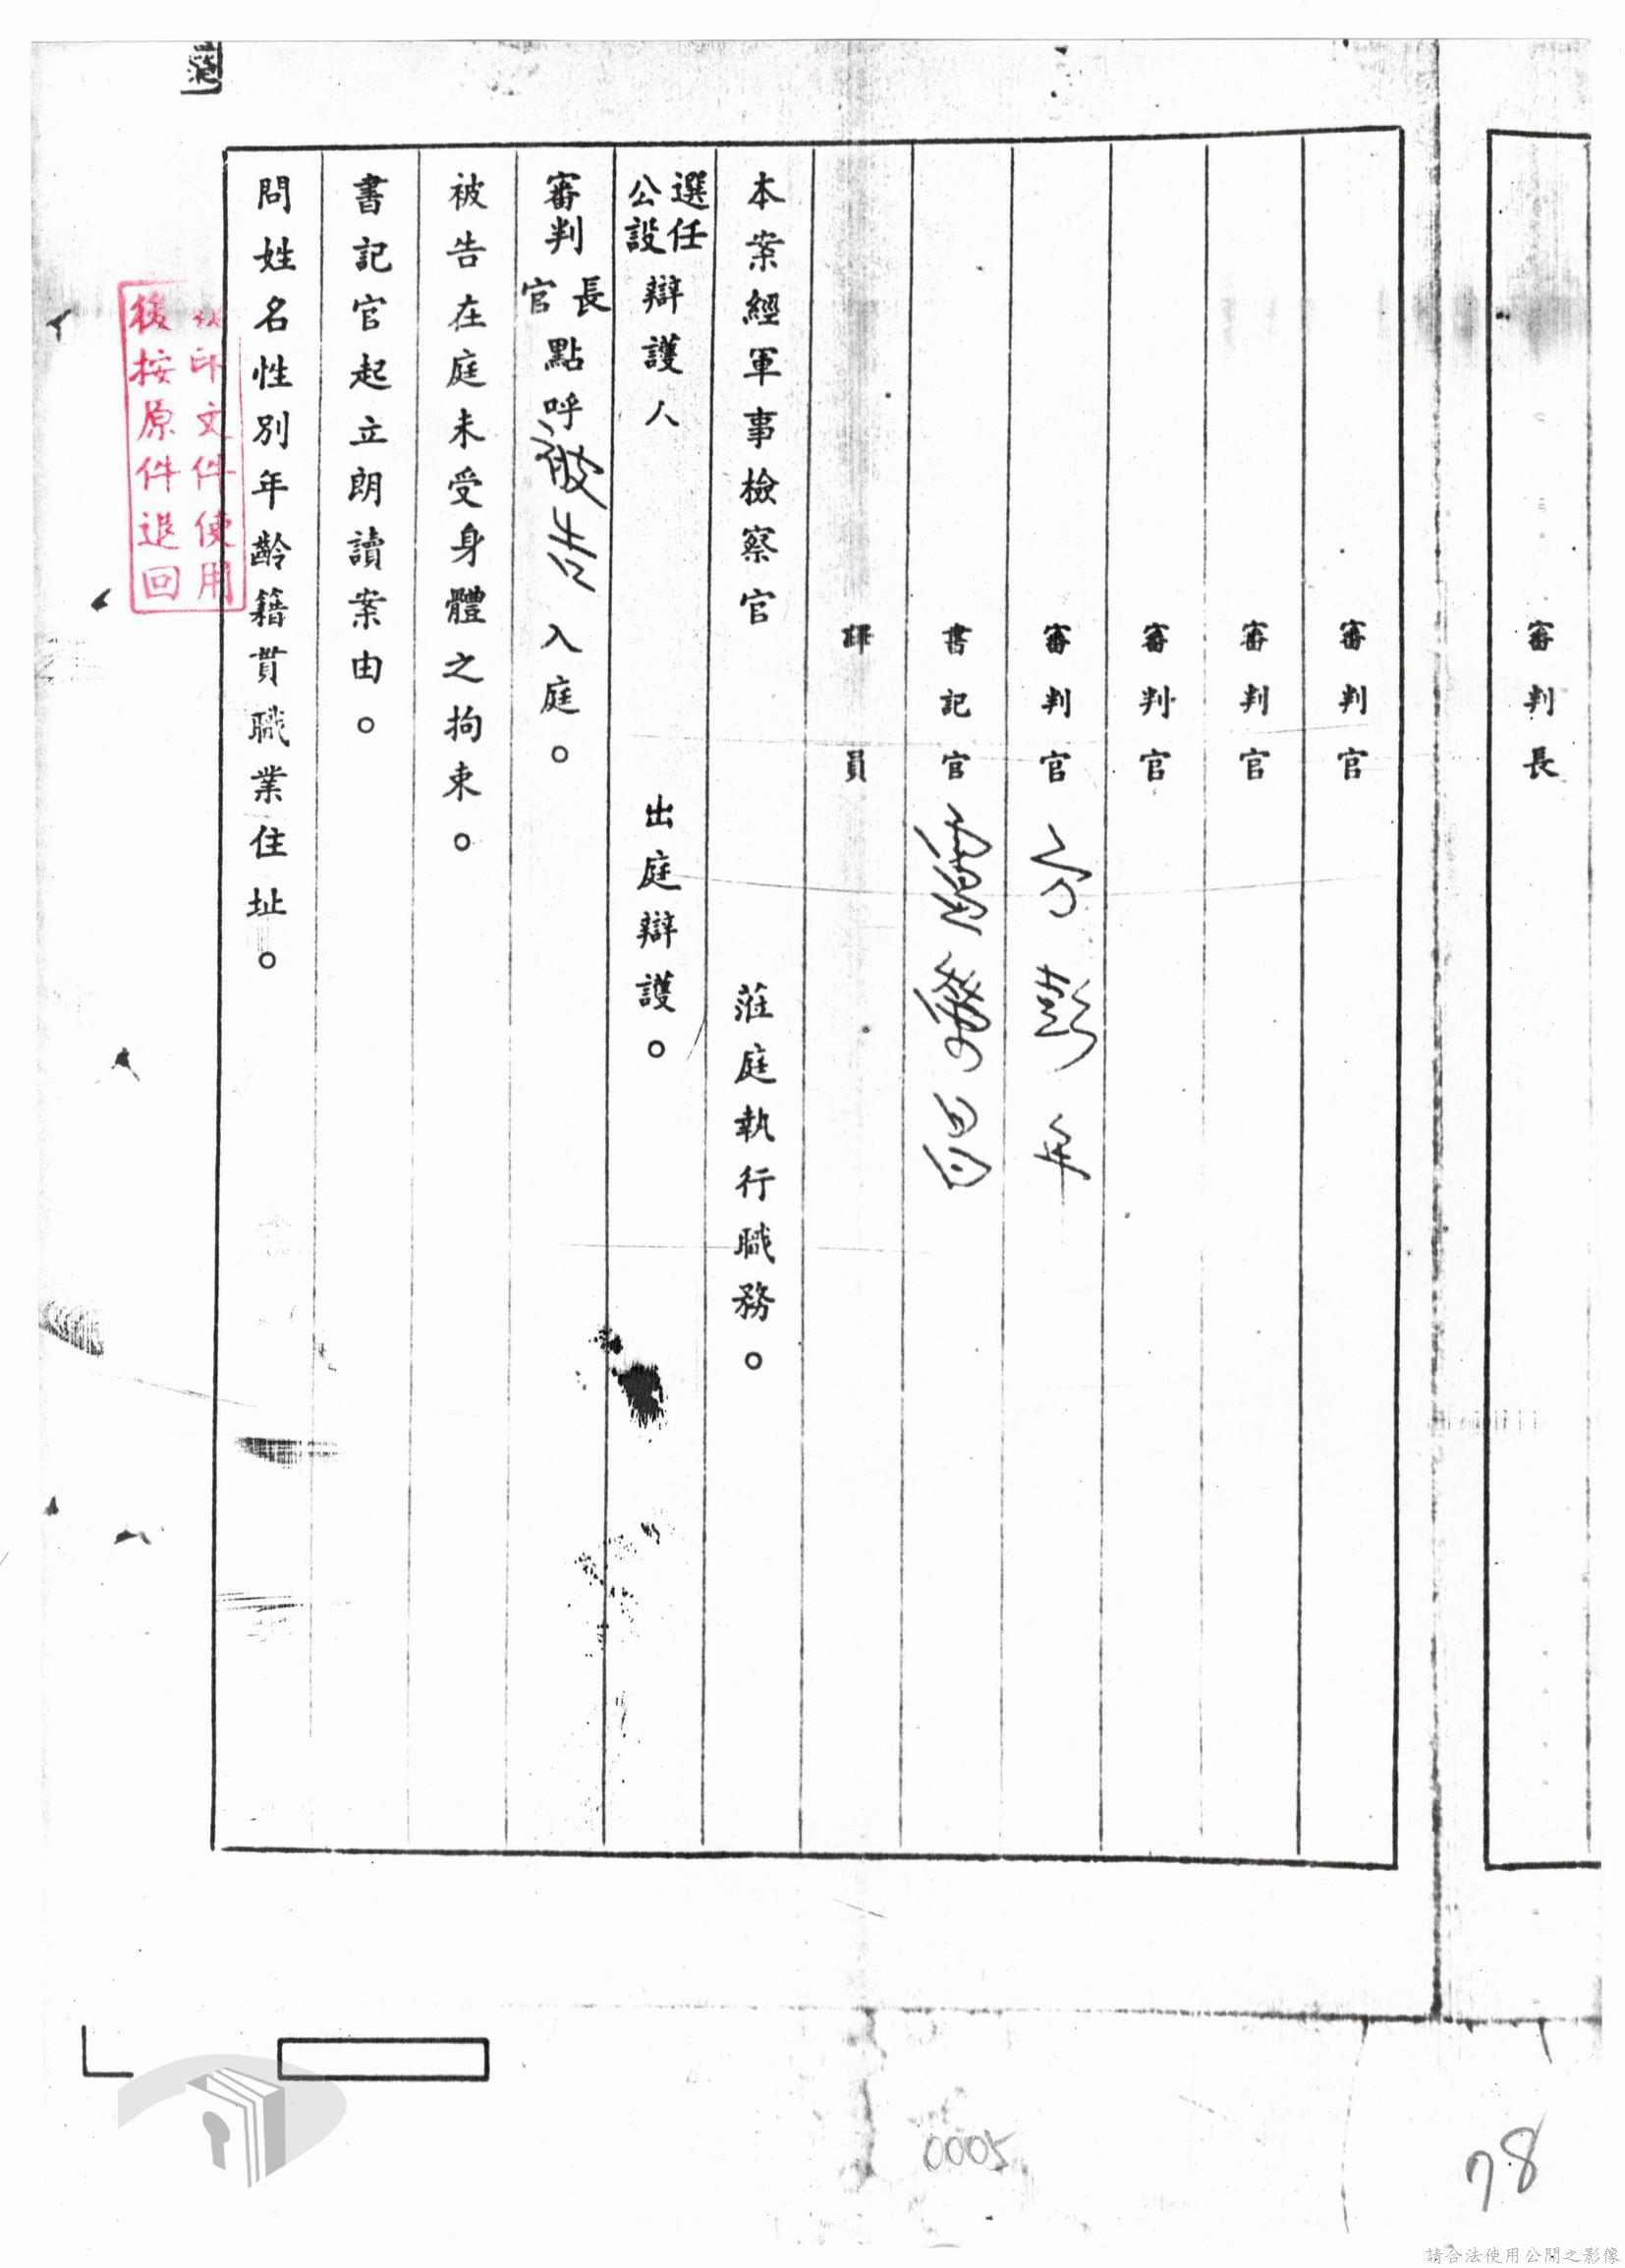 審判長
審判官
審判官
審判官
審判官 彭年
書記官
員
本案經軍事檢察官 蒞庭執行職務。
選任
公設
辯護人 出庭辯護。
審判
長
官
點呼被告入庭。
被告在庭未受身體之拘束。
書記官起立朗讀案由。
問姓名性別年齡籍貫職業住址。
印文件使用
後按原件退回
0005
78
請合法使用公開之影像